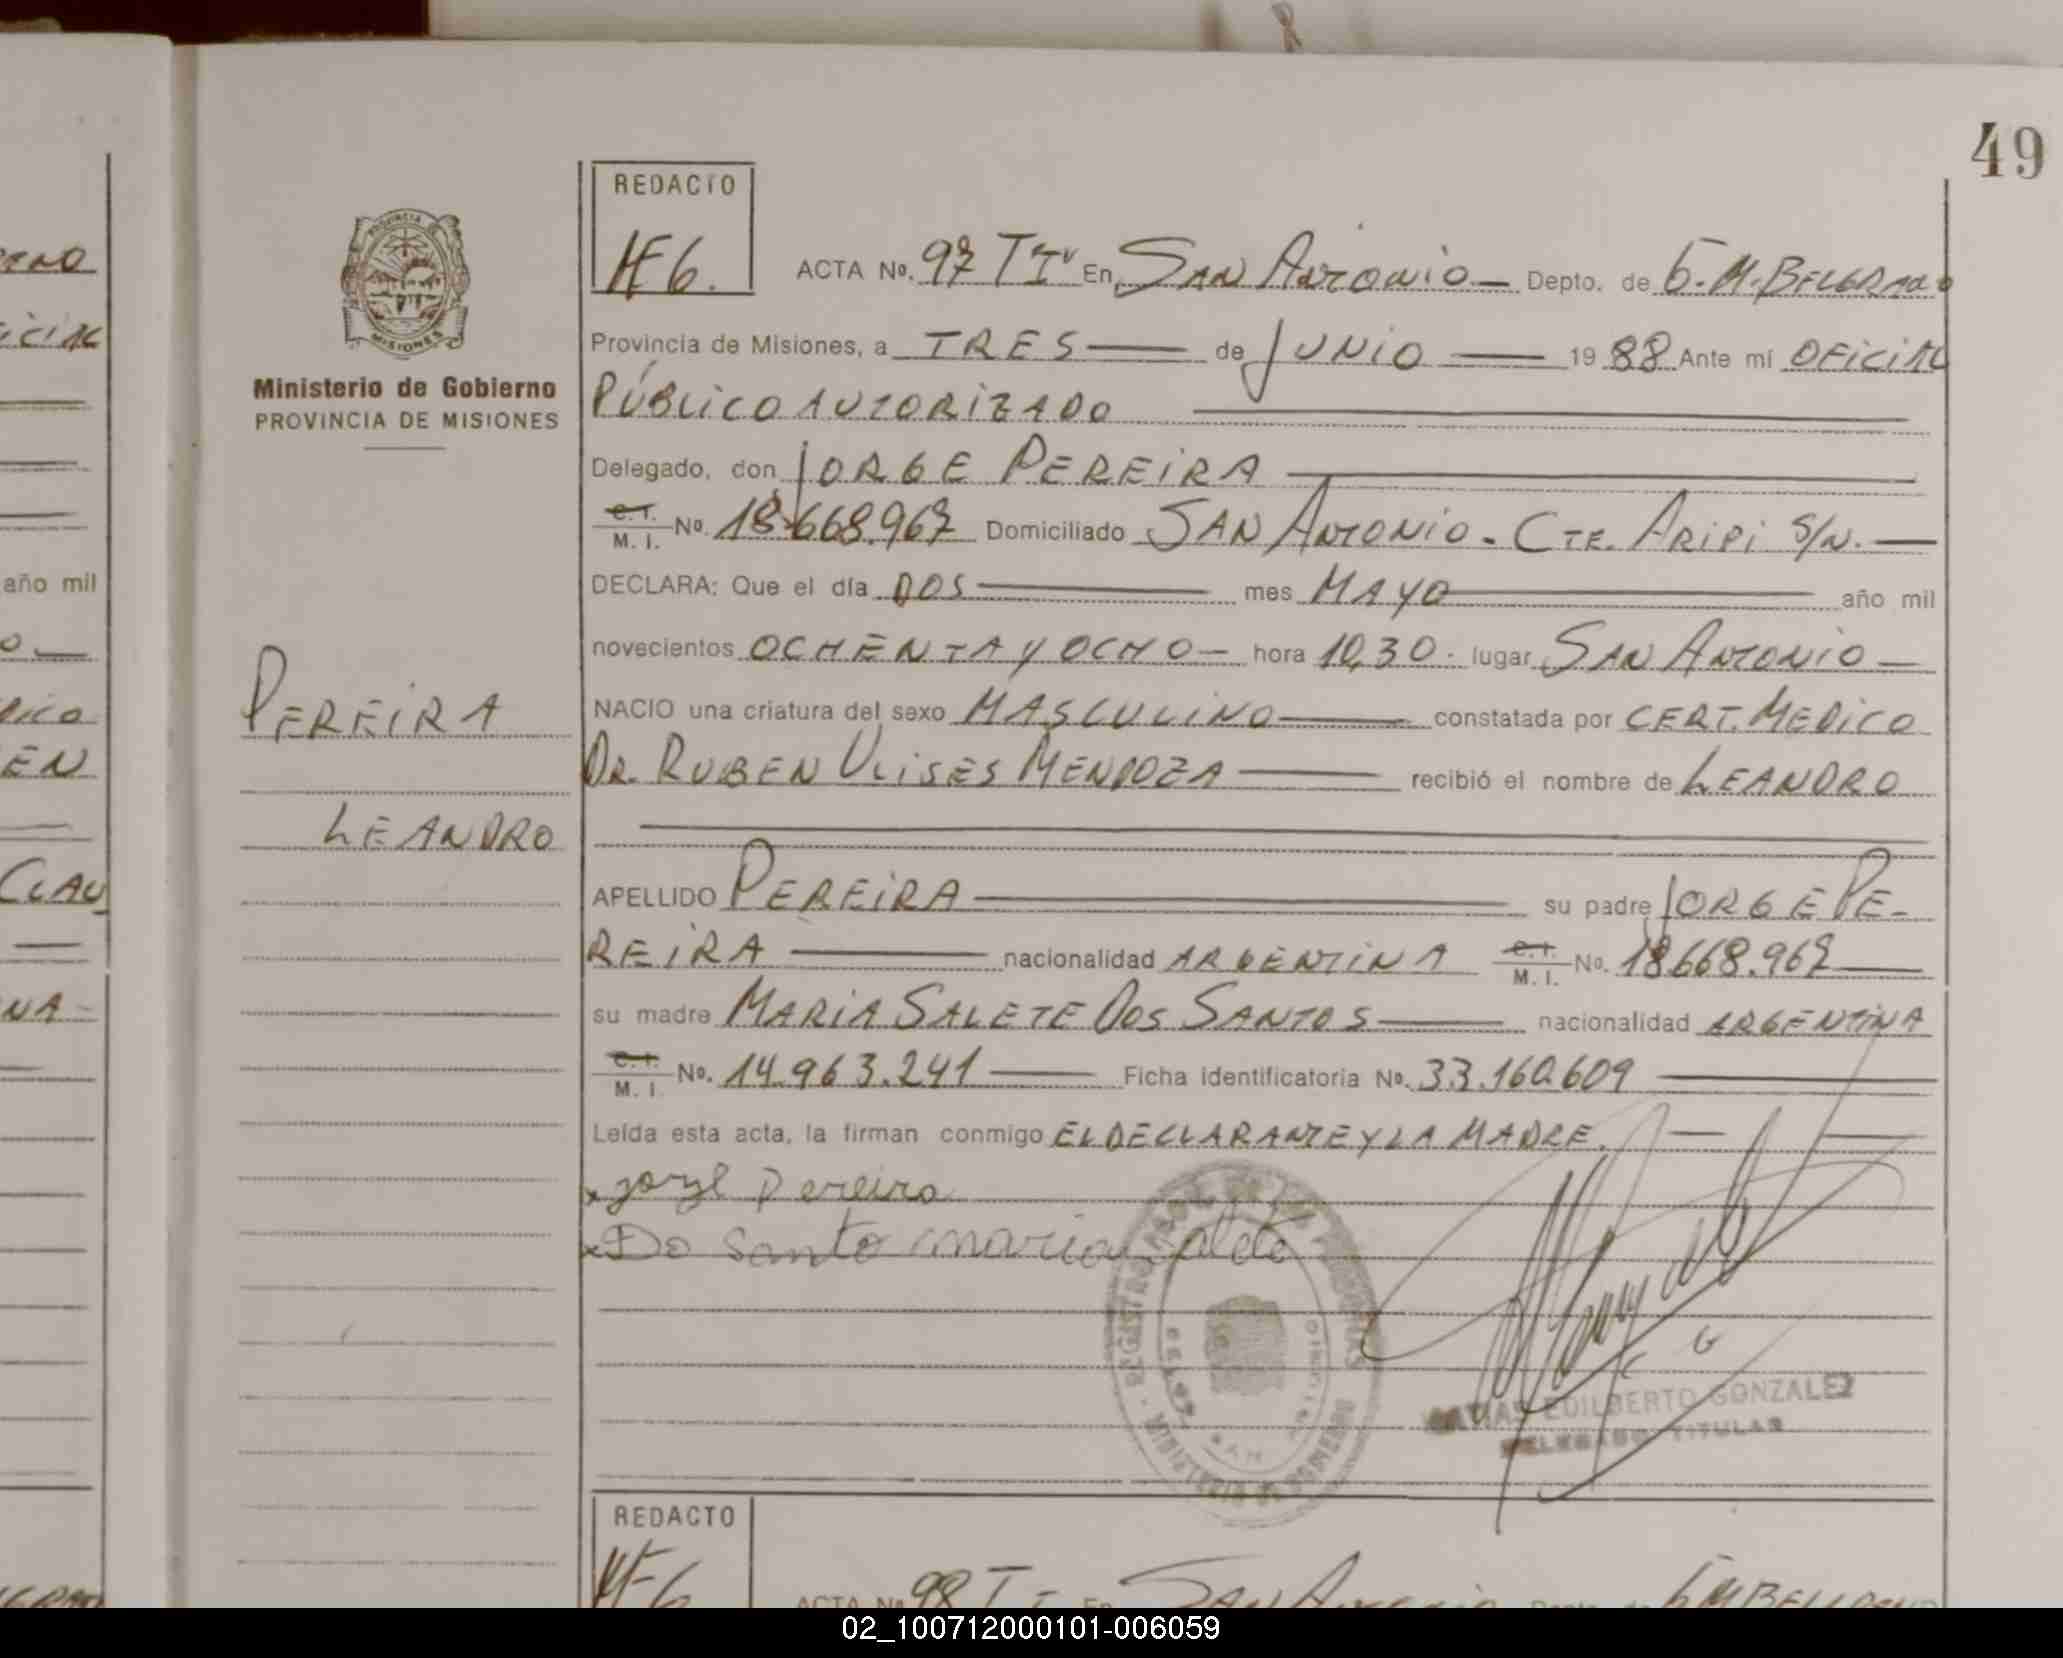 49
REDACTO
HE6.
ACTA No. 97 TIº En SAN ANTONIO — Depto. de G. M. BELGRANO
PROVINCIA DE
MISIONES
Provincia de Misiones, a TRES — de JUNIO — 1988 Ante mí OFICIAL
Ministerio de Gobierno
PROVINCIA DE MISIONES
PÚBLICO AUTORIZADO
Delegado, don JORGE PEREIRA
C. I.
M. I. No. 18.668.967 Domiciliado SAN ANTONIO - CTE. ARIPI S/N. —
DECLARA: Que el día DOS — mes MAYO — año mil
novecientos OCHENTA Y OCHO — hora 10,30 - lugar SAN ANTONIO —
NACIO una criatura del sexo MASCULINO — constatada por CERT. MEDICO
DR. RUBEN ULISES MENDOZA — recibió el nombre de LEANDRO
PEREIRA
LEANDRO
APELLIDO PEREIRA — su padre JORGE PE-
REIRA — nacionalidad ARGENTINA C. I. M. I. No. 18.668.967 —
su madre MARIA SALETE DOS SANTOS — nacionalidad ARGENTINA
C. I.
M. I. No. 14.963.241 — Ficha identificatoria No. 33.160.609 —
Leída esta acta, la firman conmigo EL DECLARANTE Y LA MADRE. — —
x jorge Pereira
x Do santo maria salete
REGISTRO DE LAS PERSONAS
MINISTERIO DE GOBIERNO
EDILBERTO GONZALEZ
DELEGADO TITULAR
REDACTO
HE6
ACTA No. 98 TI En SAN ANTONIO Depto. de G. M. BELGRANO
OFICIAL
año mil
CLAU
02_100712000101-006059